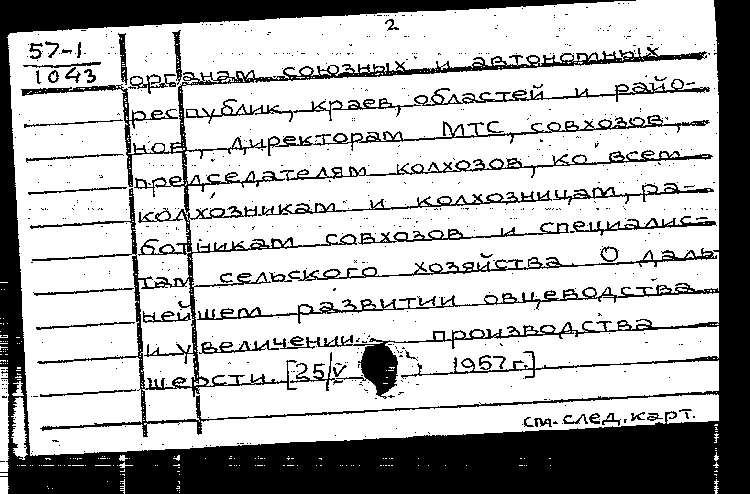 2
57-1
1043
органам союзных и автономных
республик, краев, областей и райо-
нов, директорам МТС, совхозов,
председателям колхозов, ко всем
колхозникам и колхозницам, ра-
ботникам совхозов и специалис-
там сельского хозяйства. О даль
нейшем развитии овцеводства
и увеличении производства
шерсти. [25/V 1957 г.]
см. след. карт.